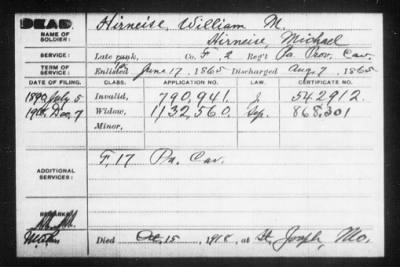 DEAD
NAME OF SOLDIER:
Hirneise, William M.
Hirneise, Michael
SERVICE:
Late rank, Co. F, 2 Reg't Pa. Prov. Cav.
TERM OF SERVICE:
Enlisted June 17, 1865 Discharged Aug. 7, 1865
DATE OF FILING. CLASS. APPLICATION NO. LAW. CERTIFICATE NO.
1890 July 5 Invalid, 790,941. 542912.
Dec. 7 Widow, 1132,560 868,301
Minor,
ADDITIONAL SERVICES:
F, 17 Pa. Cav.
REMARKS:
Died Oct. 15, 1918, at St. Joseph, Mo.